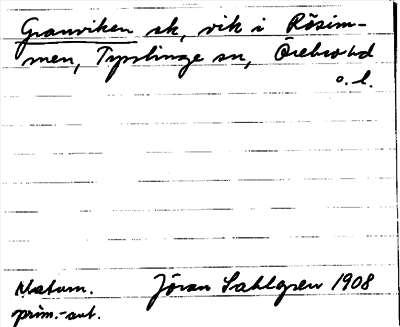 Granviken sk, vik i Rösim-
men, Tysslinge sn, Örebro hd
o. l.
Natnm. Jöran Sahlgren 1908
prim.-ant.